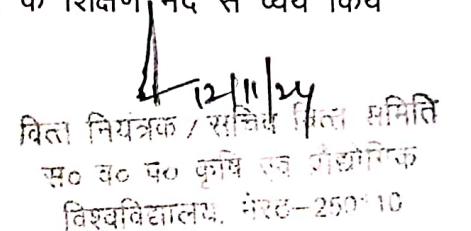 के शिक्षण मद से व्यय किये
12/11/24
वित्त नियंत्रक / सचिव वित्त समिति
स० व० प० कृषि एवं प्रौद्योगिक
विश्वविद्यालय, मेरठ-250110